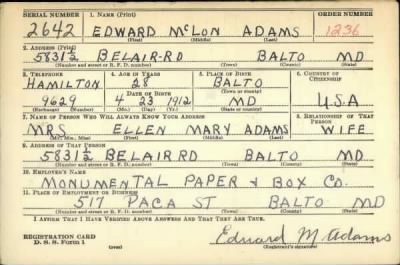 SERIAL NUMBER 1. NAME (Print) ORDER NUMBER
2642 EDWARD McLON ADAMS 1236
(First) (Middle) (Last)
2. ADDRESS (Print)
5831½ BELAIR-RD BALTO MD
(Number and street or R. F. D. number) (Town) (County) (State)
3. TELEPHONE 4. AGE IN YEARS 5. PLACE OF BIRTH 6. COUNTRY OF CITIZENSHIP
HAMILTON 28 BALTO
DATE OF BIRTH (Town or county)
9629 4 23 1912 MD U.S.A
(Exchange) (Number) (Mo.) (Day) (Yr.) (State or country)
7. NAME OF PERSON WHO WILL ALWAYS KNOW YOUR ADDRESS 8. RELATIONSHIP OF THAT PERSON
MRS ELLEN MARY ADAMS WIFE
(Mr., Mrs., Miss) (First) (Middle) (Last)
9. ADDRESS OF THAT PERSON
5831½ BELAIR RD BALTO MD
(Number and street or R. F. D. number) (Town) (County) (State)
10. EMPLOYER'S NAME
MONUMENTAL PAPER & BOX CO.
11. PLACE OF EMPLOYMENT OR BUSINESS
517 PACA ST BALTO MD
(Number and street or R. F. D. number) (Town) (County) (State)
I AFFIRM THAT I HAVE VERIFIED ABOVE ANSWERS AND THAT THEY ARE TRUE.
REGISTRATION CARD
D. S. S. Form 1 (over) Edward M. Adams
(Registrant's signature)